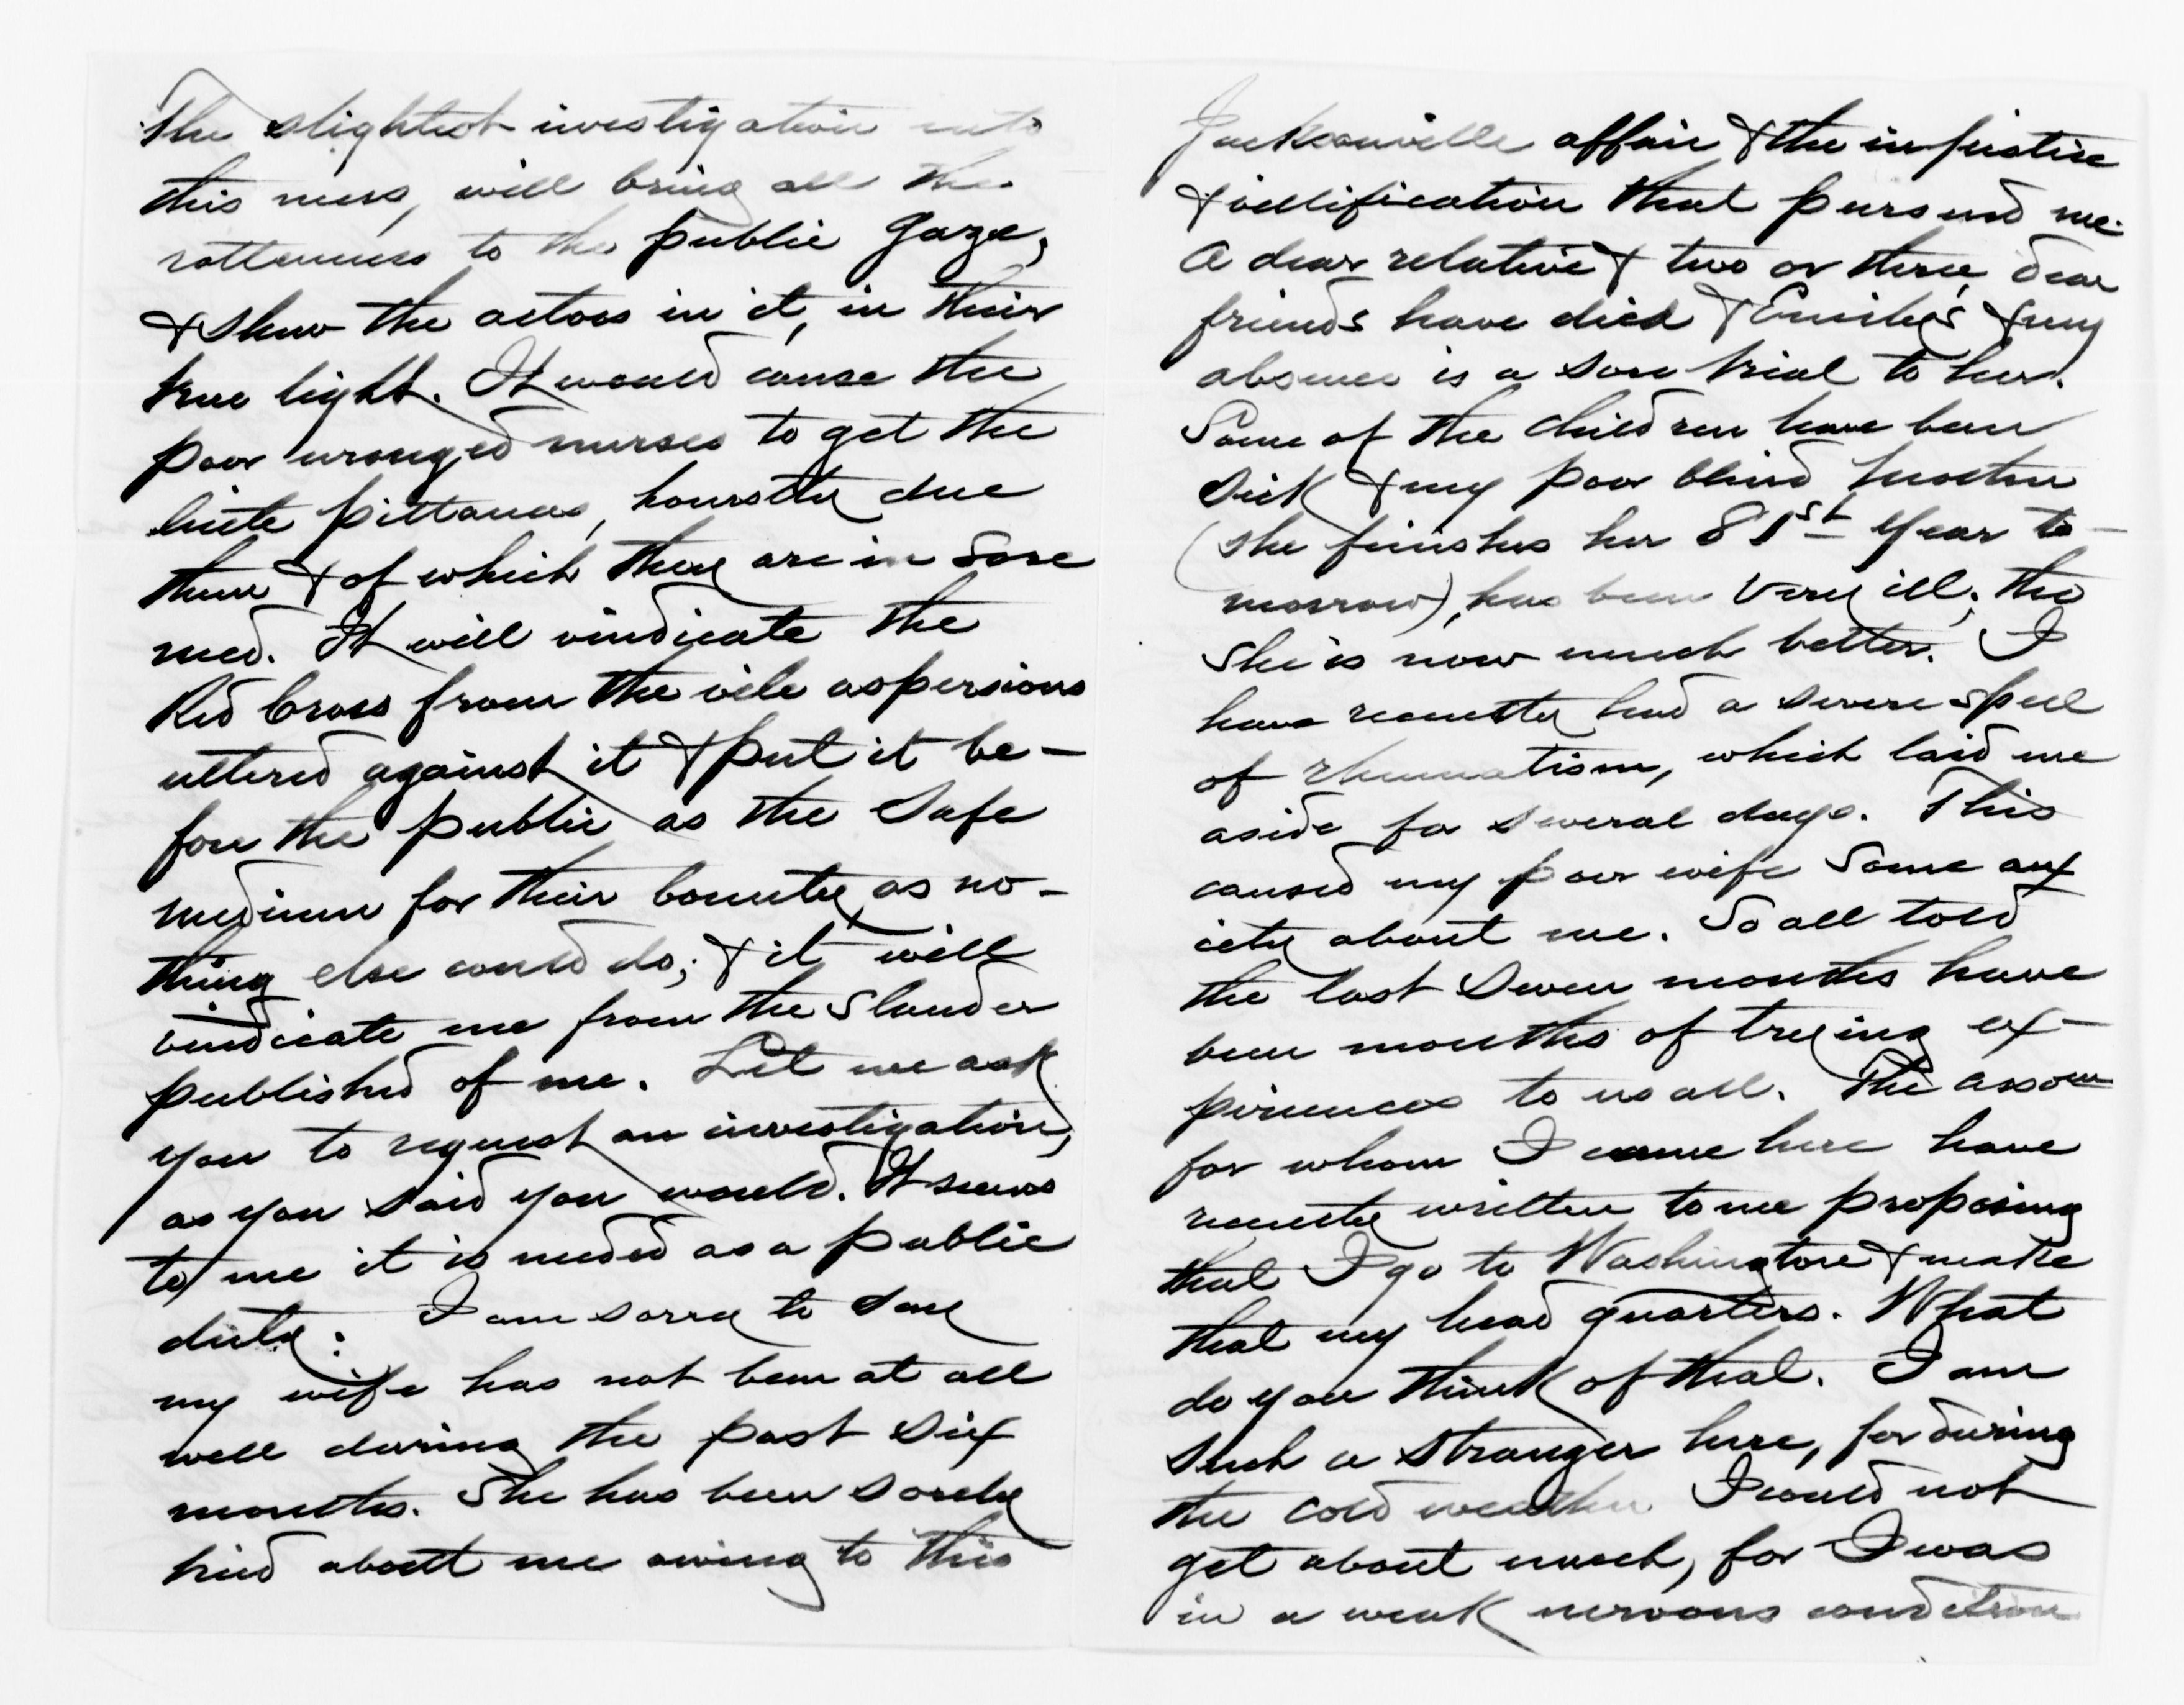 The slightest investigation into
this mess, will bring all the
rottenness to the public gaze,
& show the actors in it, in their
true light. It would cause the
poor wronged nurses to get the
little pittances, honestly due
them & of which they are in sore
need. It will vindicate the
Red Cross from the vile aspersions
uttered against it & put it be-
fore the public as the safe
medium for their bounty, as no-
thing else could do; & it will
vindicate me from the slander
published of me. Let me ask
you to request an investigation,
as you said you would. It seems
to me it is needed as a public
duty. I am sorry to say
my wife has not been at all
well during the past six
months. She has been sorely
tried about me owing to this
Jacksonville affair & the injustice
& villification that pursued me.
A dear relative & two or three, dear
friends have died & Emily's & my
absence is a sore trial to her.
Some of the children have been
sick & my poor blind mother
(she finishes her 81st year to-
morrow), has been very ill, tho
she is now much better. I
have recently had a severe spell
of rheumatism, which laid me
aside for several days. This
caused my poor wife some anx
iety about me. So all told
the last seven months have
been months of trying ex-
periences to us all. The assocn
for whom I came here have
recently written to me proposing
that I go to Washington & make
that my head quarters. What
do you think of that. I am
such a stranger here, for during
the cold weather I could not
get about much, for I was
in a weak nervous condition